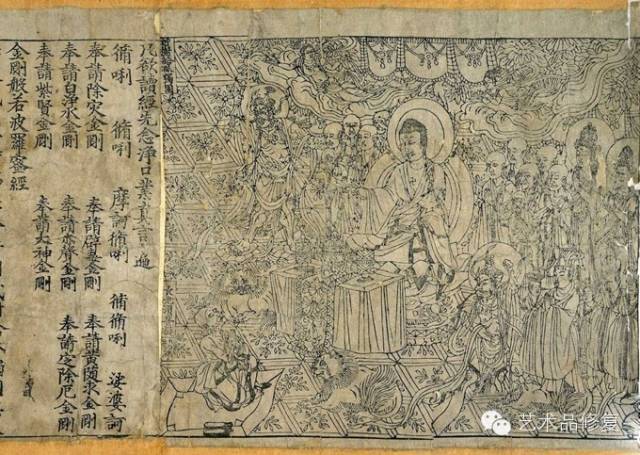 凡欲讀經先念淨口業真言一遍
脩唎 脩唎 摩訶脩唎 脩脩唎 娑婆訶
奉請除灾金剛 奉請辟毒金剛 奉請黃隨求金剛
奉請白淨水金剛 奉請赤聲金剛 奉請定除厄金剛
奉請紫賢金剛 奉請大神金剛
金剛般若波羅蜜經
艺术品修复